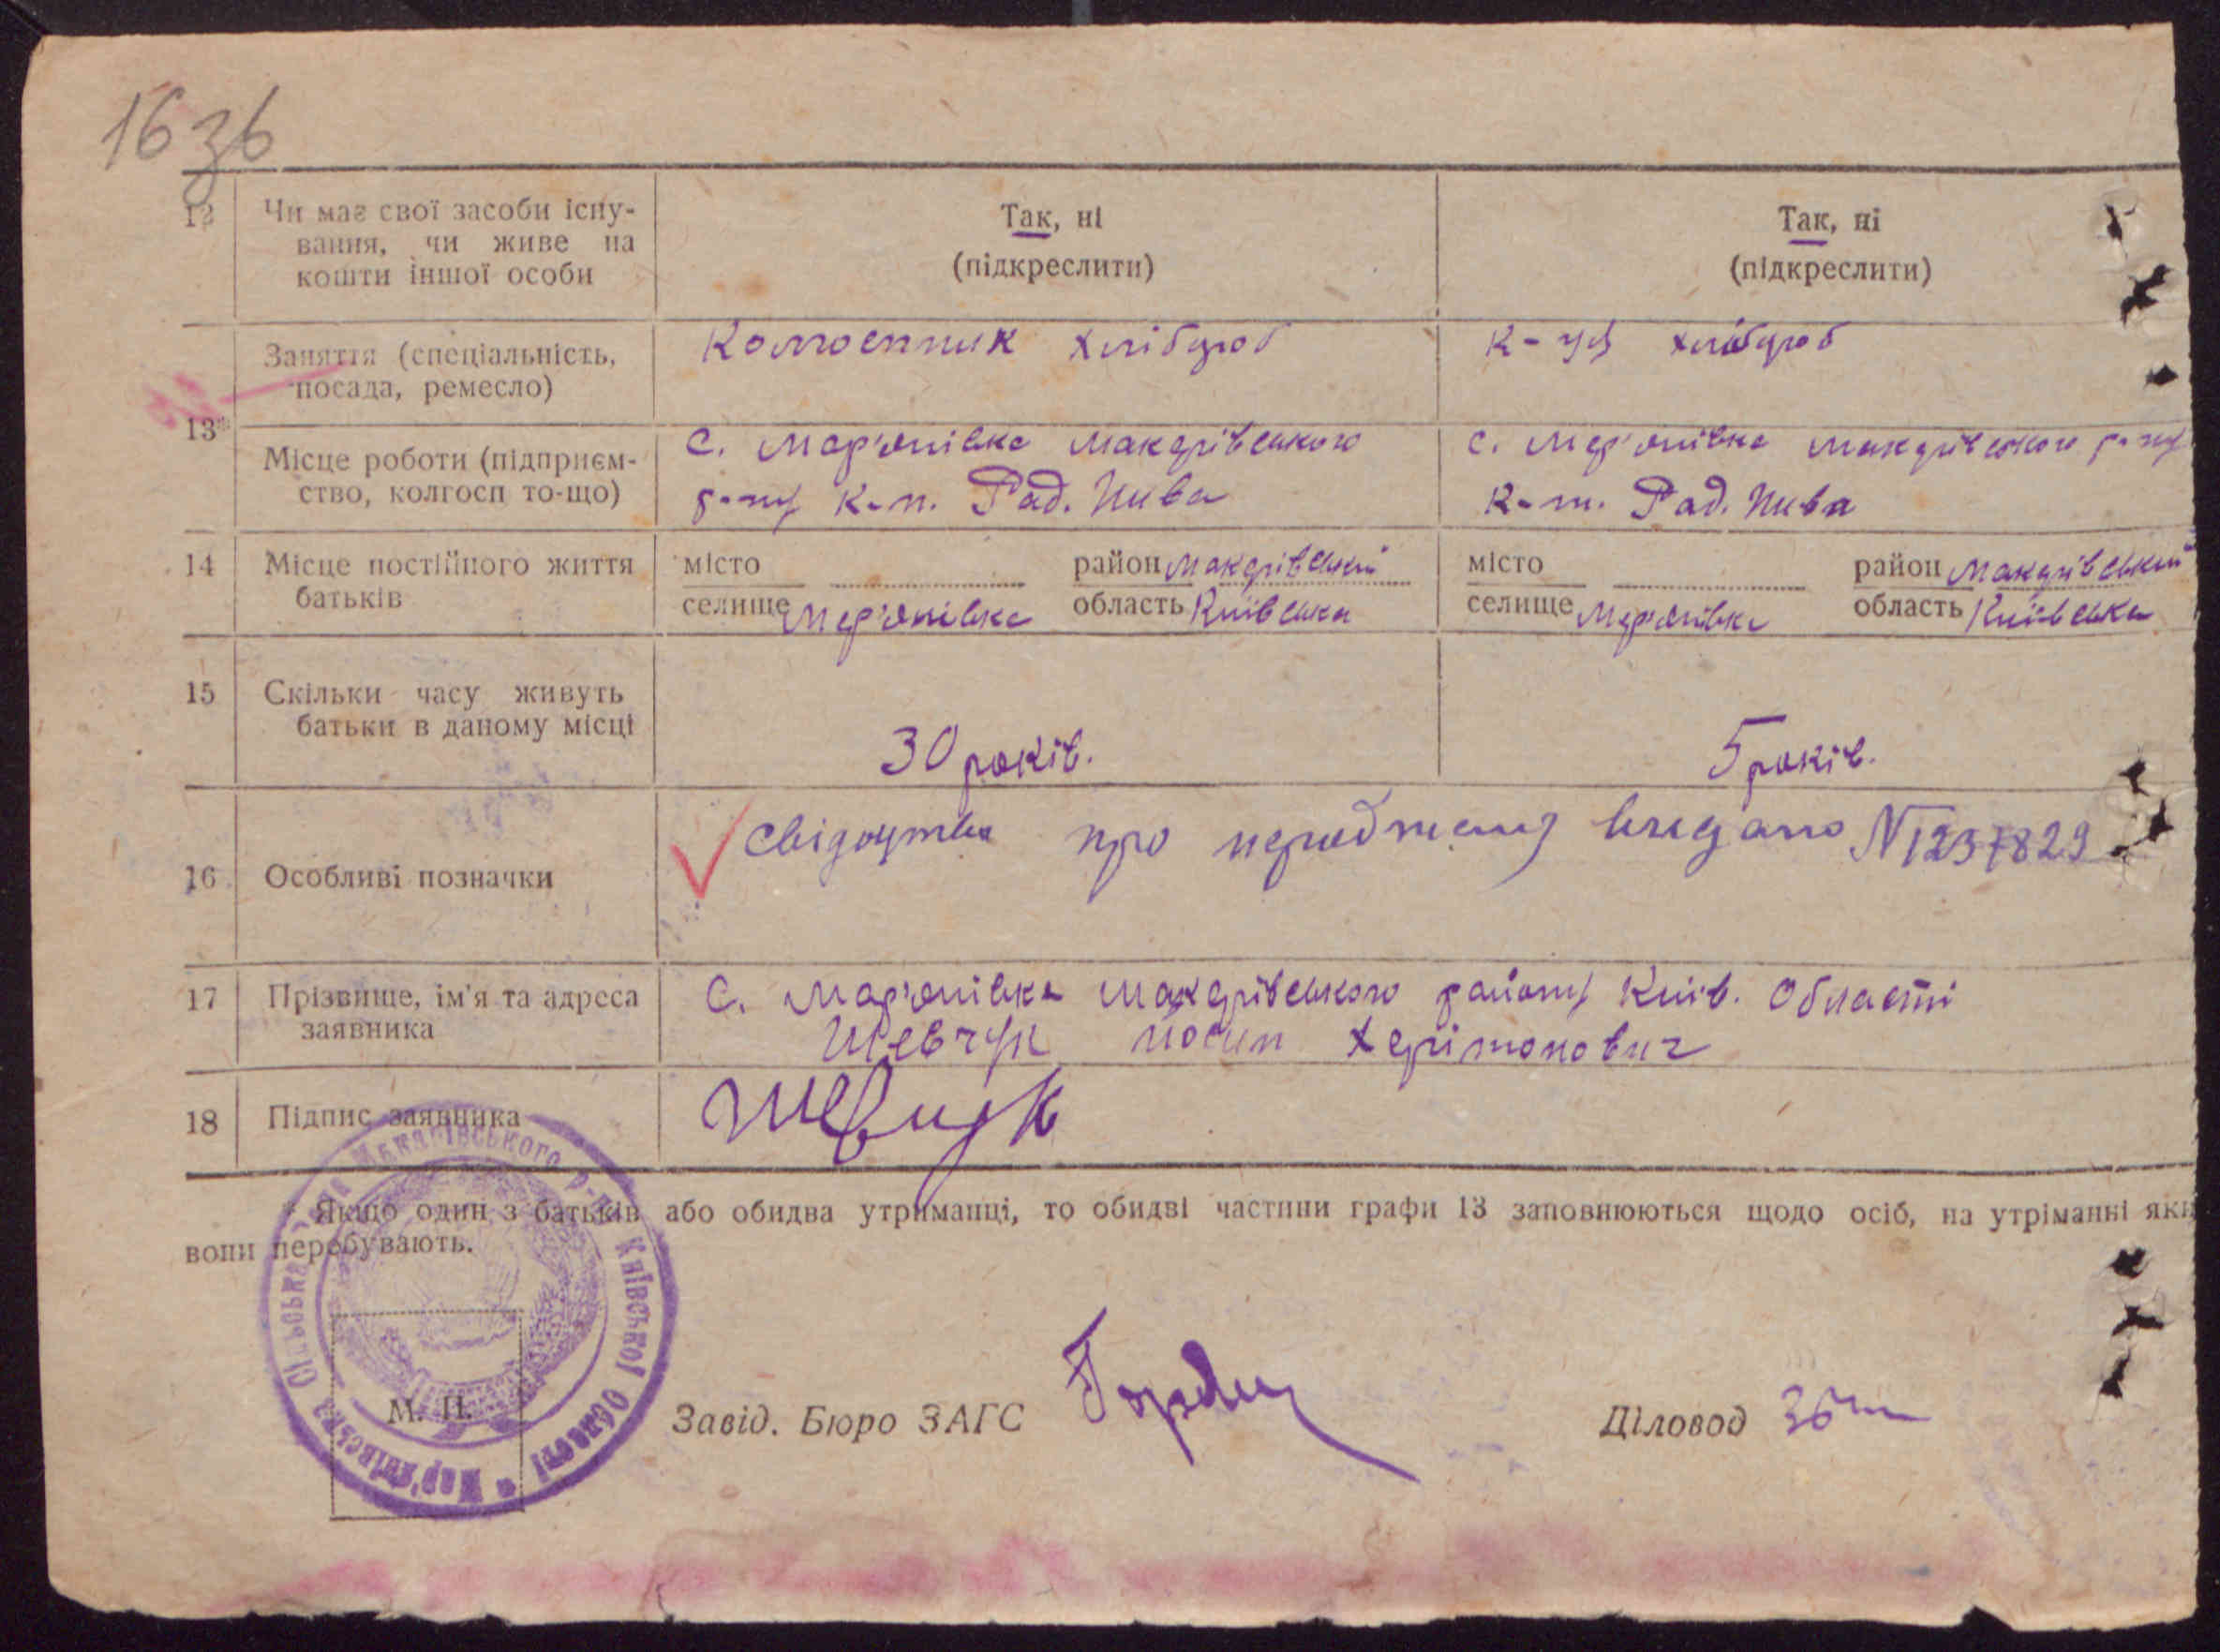 16 зв
12 Чи має свої засоби існу-
вання, чи живе на
кошти іншої особи
Так, ні
(підкреслити)
Так, ні
(підкреслити)
13*
Заняття (спеціальність,
посада, ремесло)
Колгоспник хлібороб
к-ця хлібороб
Місце роботи (підприєм-
ство, колгосп то-що)
с. Мар'янівка Макарівського
р-ну К-п. Рад. Нива
с. Мар'янівка Макарівського р-ну
К-п. Рад. Нива
14 Місце постійного життя
батьків
місто район Макарівський
селище Мар'янівка область Київська
місто район Макарівський
селище Мар'янівка область Київська
15 Скільки часу живуть
батьки в даному місці
30 років.
5 років.
16 Особливі позначки
Свідоцтво про народження видано № 1237829
17 Прізвище, ім'я та адреса
заявника
С. Мар'янівка Макарівського району Київ. Області
Шевчук Йосип Харитонович
18 Підпис заявника
Шевчук
* Якщо один з батьків або обидва утриманці, то обидві частини графи 13 заповнюються щодо осіб, на утріманні яки
вони перебувають.
Мар'янівська Сільська Макарівського р-ну Київської Області
М. П.
Завід. Бюро ЗАГС
Діловод